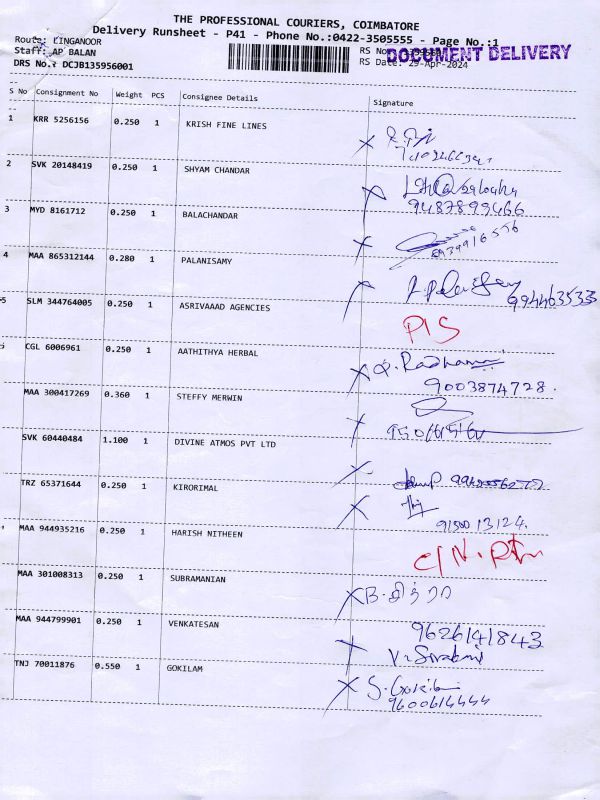 THE PROFESSIONAL COURIERS, COIMBATORE
Delivery Runsheet - P41 - Phone No.:0422-3505555 - Page No.:1
Route: LINGANOOR
Staff: AP BALAN RS No DOCUMENT DELIVERY
DRS No.: DCJB135956001 RS Date: 29-Apr-2024
S No Consignment No Weight PCS Consignee Details Signature
1 KRR 5256156 0.250 1 KRISH FINE LINES
2 SVK 20148419 0.250 1 SHYAM CHANDAR
9487899466
3 MYD 8161712 0.250 1 BALACHANDAR
4 MAA 865312144 0.280 1 PALANISAMY
994463533
5 SLM 344764005 0.250 1 ASRIVAAAD AGENCIES
PIS
CGL 6006961 0.250 1 AATHITHYA HERBAL
9003874728.
MAA 300417269 0.360 1 STEFFY MERWIN
SVK 60440484 1.100 1 DIVINE ATMOS PVT LTD
TRZ 65371644 0.250 1 KIRORIMAL
9150013124.
MAA 944935216 0.250 1 HARISH NITHEEN
MAA 301008313 0.250 1 SUBRAMANIAN
B. சித்ரா
MAA 944799901 0.250 1 VENKATESAN
9626141843
TNJ 70011876 0.550 1 GOKILAM
9600614444